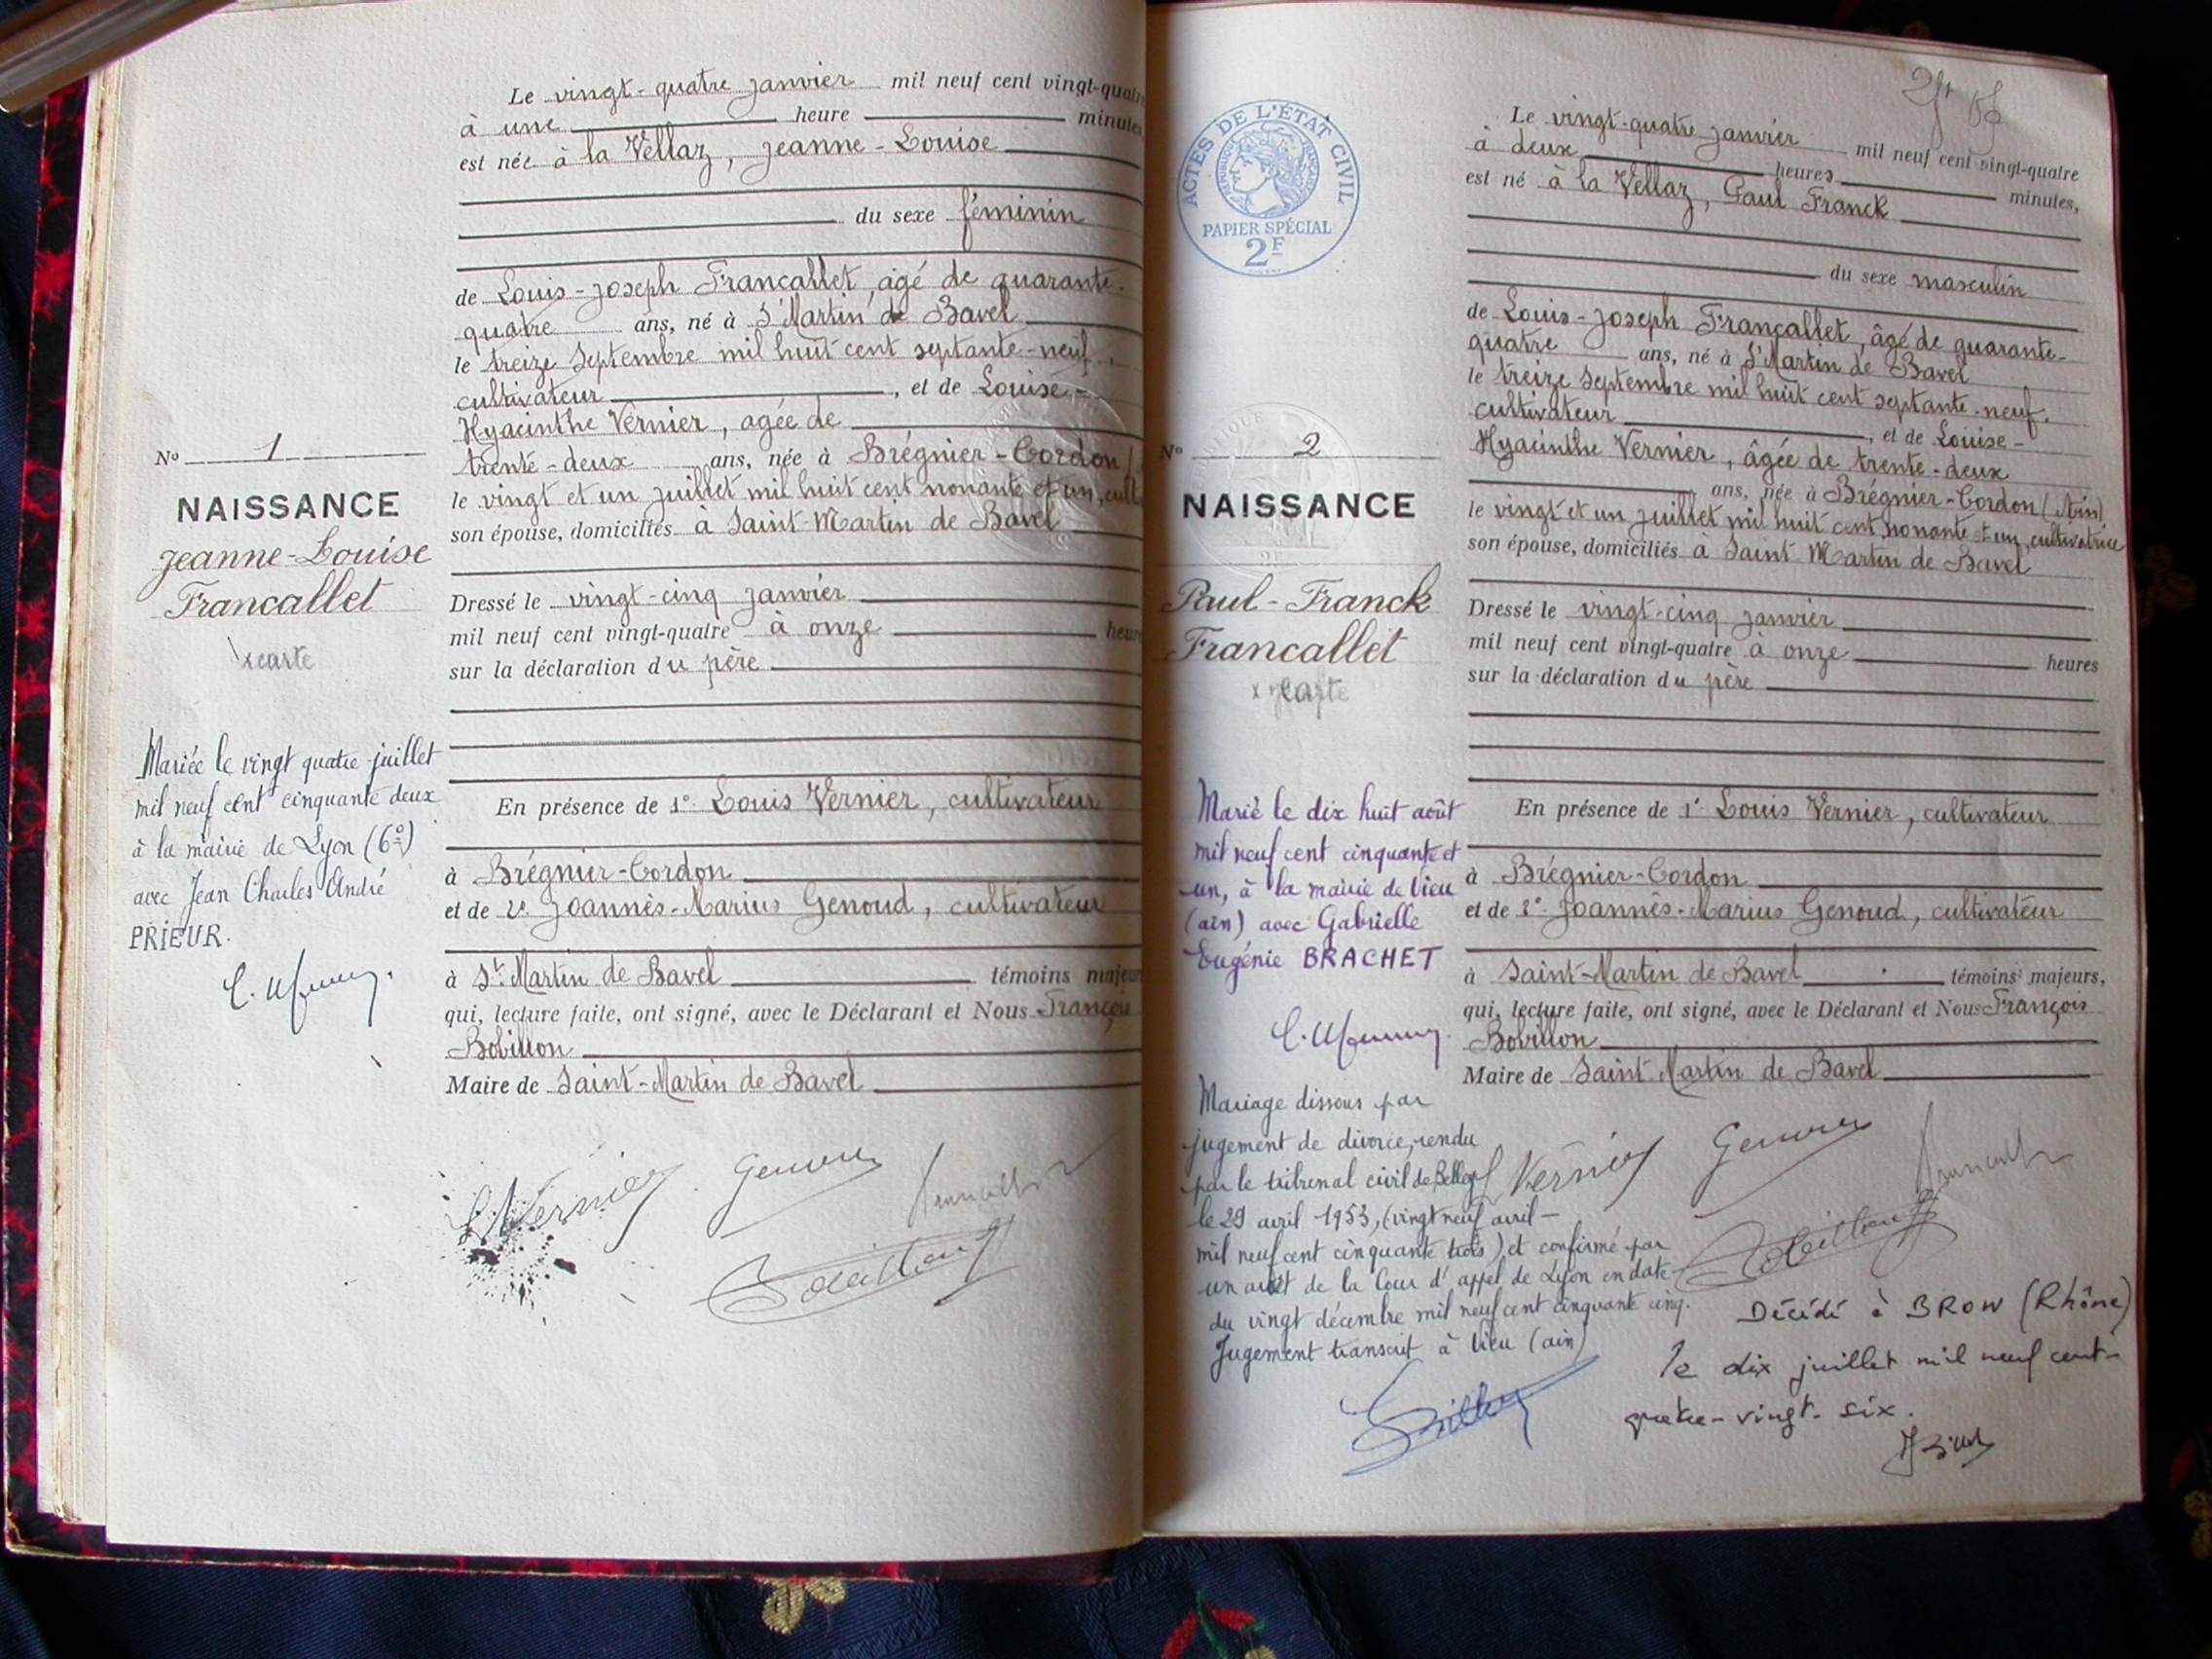 Le vingt-quatre janvier mil neuf cent vingt-quatre
à une heure minutes
est née à la Vellaz, Jeanne-Louise
du sexe féminin
de Louis-Joseph Francallet, âgé de quarante-
quatre ans, né à St Martin de Bavel
le treize Septembre mil huit cent septante-neuf
cultivateur, et de Louise-
Hyacinthe Vernier, agée de
trente-deux ans, née à Brégnier-Cordon
le vingt et un juillet mil huit cent nonante et un, cult
son épouse, domiciliés à Saint-Martin de Bavel
Dressé le vingt-cinq janvier
mil neuf cent vingt-quatre à onze heur
sur la déclaration du père
En présence de 1° Louis Vernier, cultivateur
à Brégnier-Cordon
et de 2° Joannès-Marius Genoud, cultivateur
à St Martin de Bavel témoins majeur
qui, lecture faite, ont signé, avec le Déclarant et Nous François
Bobillon
Maire de Saint-Martin de Bavel
L Vernier
N° 1
NAISSANCE
Jeanne-Louise
Francallet
x carte
Mariée le vingt quatre juillet
mil neuf cent cinquante deux
à la mairie de Lyon (6e)
avec Jean Charles André
PRIEUR.
ACTES DE L'ÉTAT CIVIL
PAPIER SPÉCIAL
2F
Le vingt-quatre janvier mil neuf cent vingt-quatre
à deux heures minutes,
est né à la Vellaz, Paul Franck
du sexe masculin
de Louis-Joseph Francallet, âgé de quarante-
quatre ans, né à St Martin de Bavel
le treize Septembre mil huit cent septante-neuf.
cultivateur, et de Louise-
Hyacinthe Vernier, âgée de trente-deux
ans, née à Brégnier-Cordon (Ain)
le vingt et un juillet mil huit cent nonante et un, cultivatrice
son épouse, domiciliés à Saint Martin de Bavel
Dressé le vingt-cinq janvier
mil neuf cent vingt-quatre à onze heures
sur la déclaration du père
En présence de 1° Louis Vernier, cultivateur
à Brégnier-Cordon
et de 2° Joannès-Marius Genoud, cultivateur
à Saint-Martin de Bavel témoins majeurs,
qui, lecture faite, ont signé, avec le Déclarant et Nous François
Bobillon
Maire de Saint Martin de Bavel
L Vernier
N° 2
NAISSANCE
Paul-Franck
Francallet
x carte
Marié le dix huit août
mil neuf cent cinquante et
un, à la mairie de Vieu
(ain) avec Gabrielle
Eugénie BRACHET
Mariage dissous par
jugement de divorce, rendu
par le tribunal civil de Belley
le 29 avril 1953, (vingt neuf avril-
mil neuf cent cinquante trois) et confirmé par
un arrêt de la Cour d'appel de Lyon en date
du vingt décembre mil neuf cent cinquante cinq.
Jugement transcrit à Vieu (ain)
Décédé à BRON (Rhône)
le dix juillet mil neuf cent-
quatre-vingt-six.